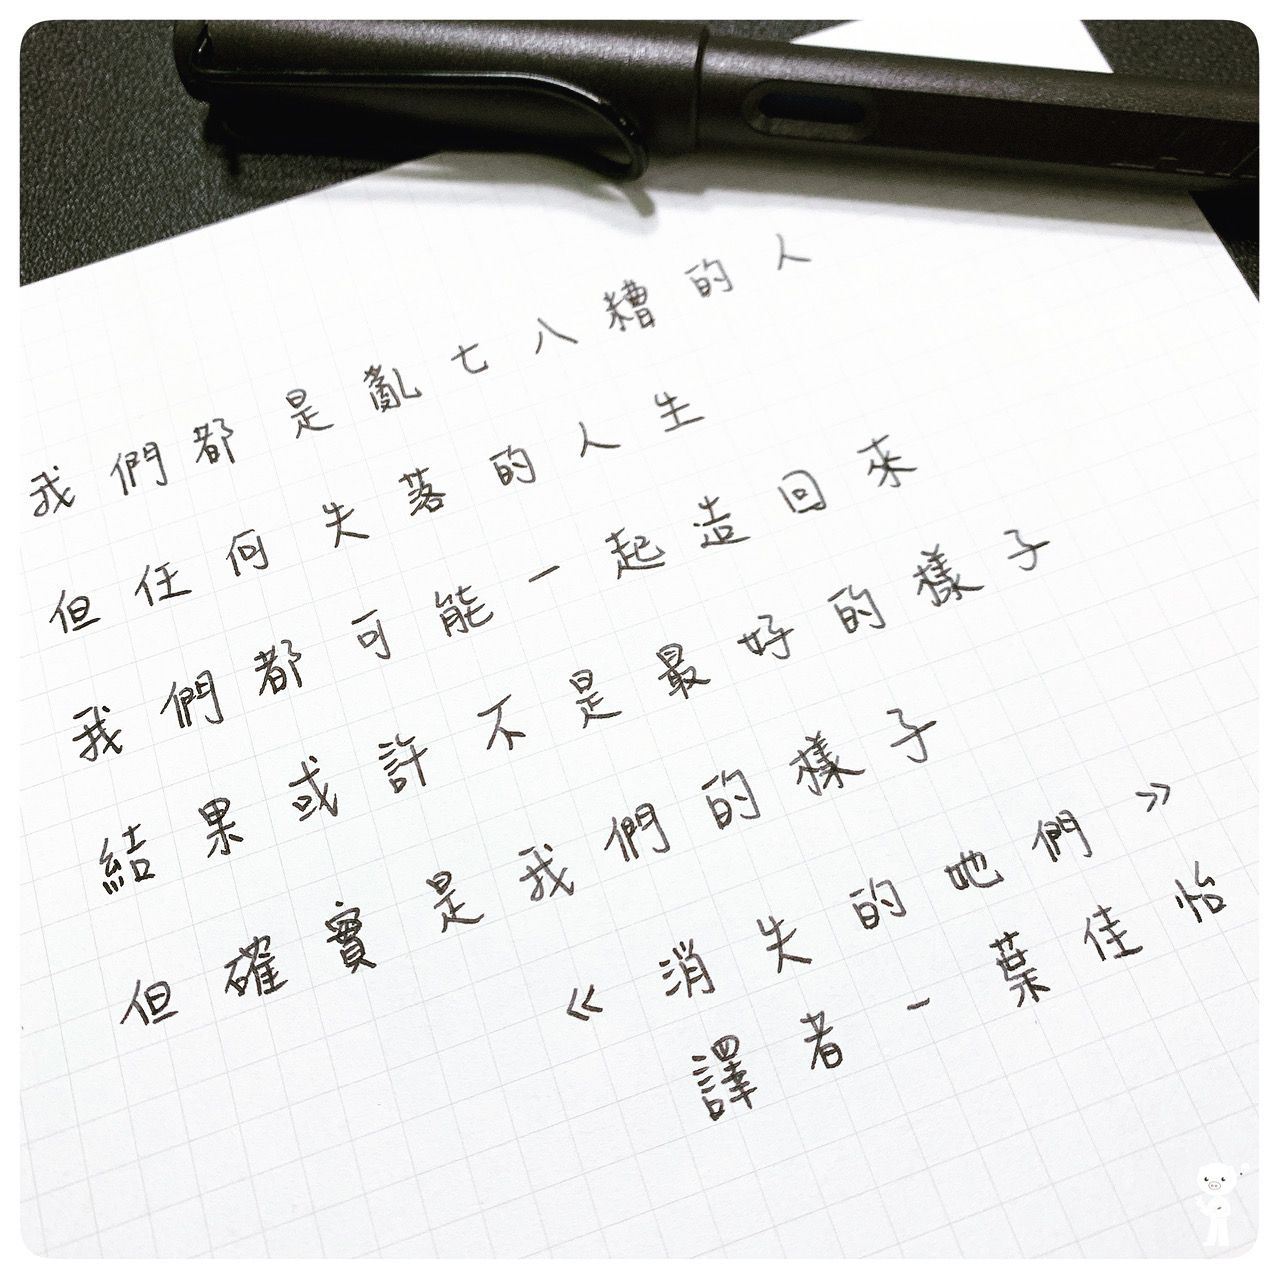 我們都是亂七八糟的人
但任何失落的人生
我們都可能一起造回來
結果或許不是最好的樣子
但確實是我們的樣子
《消失的她們》
譯者-葉佳怡